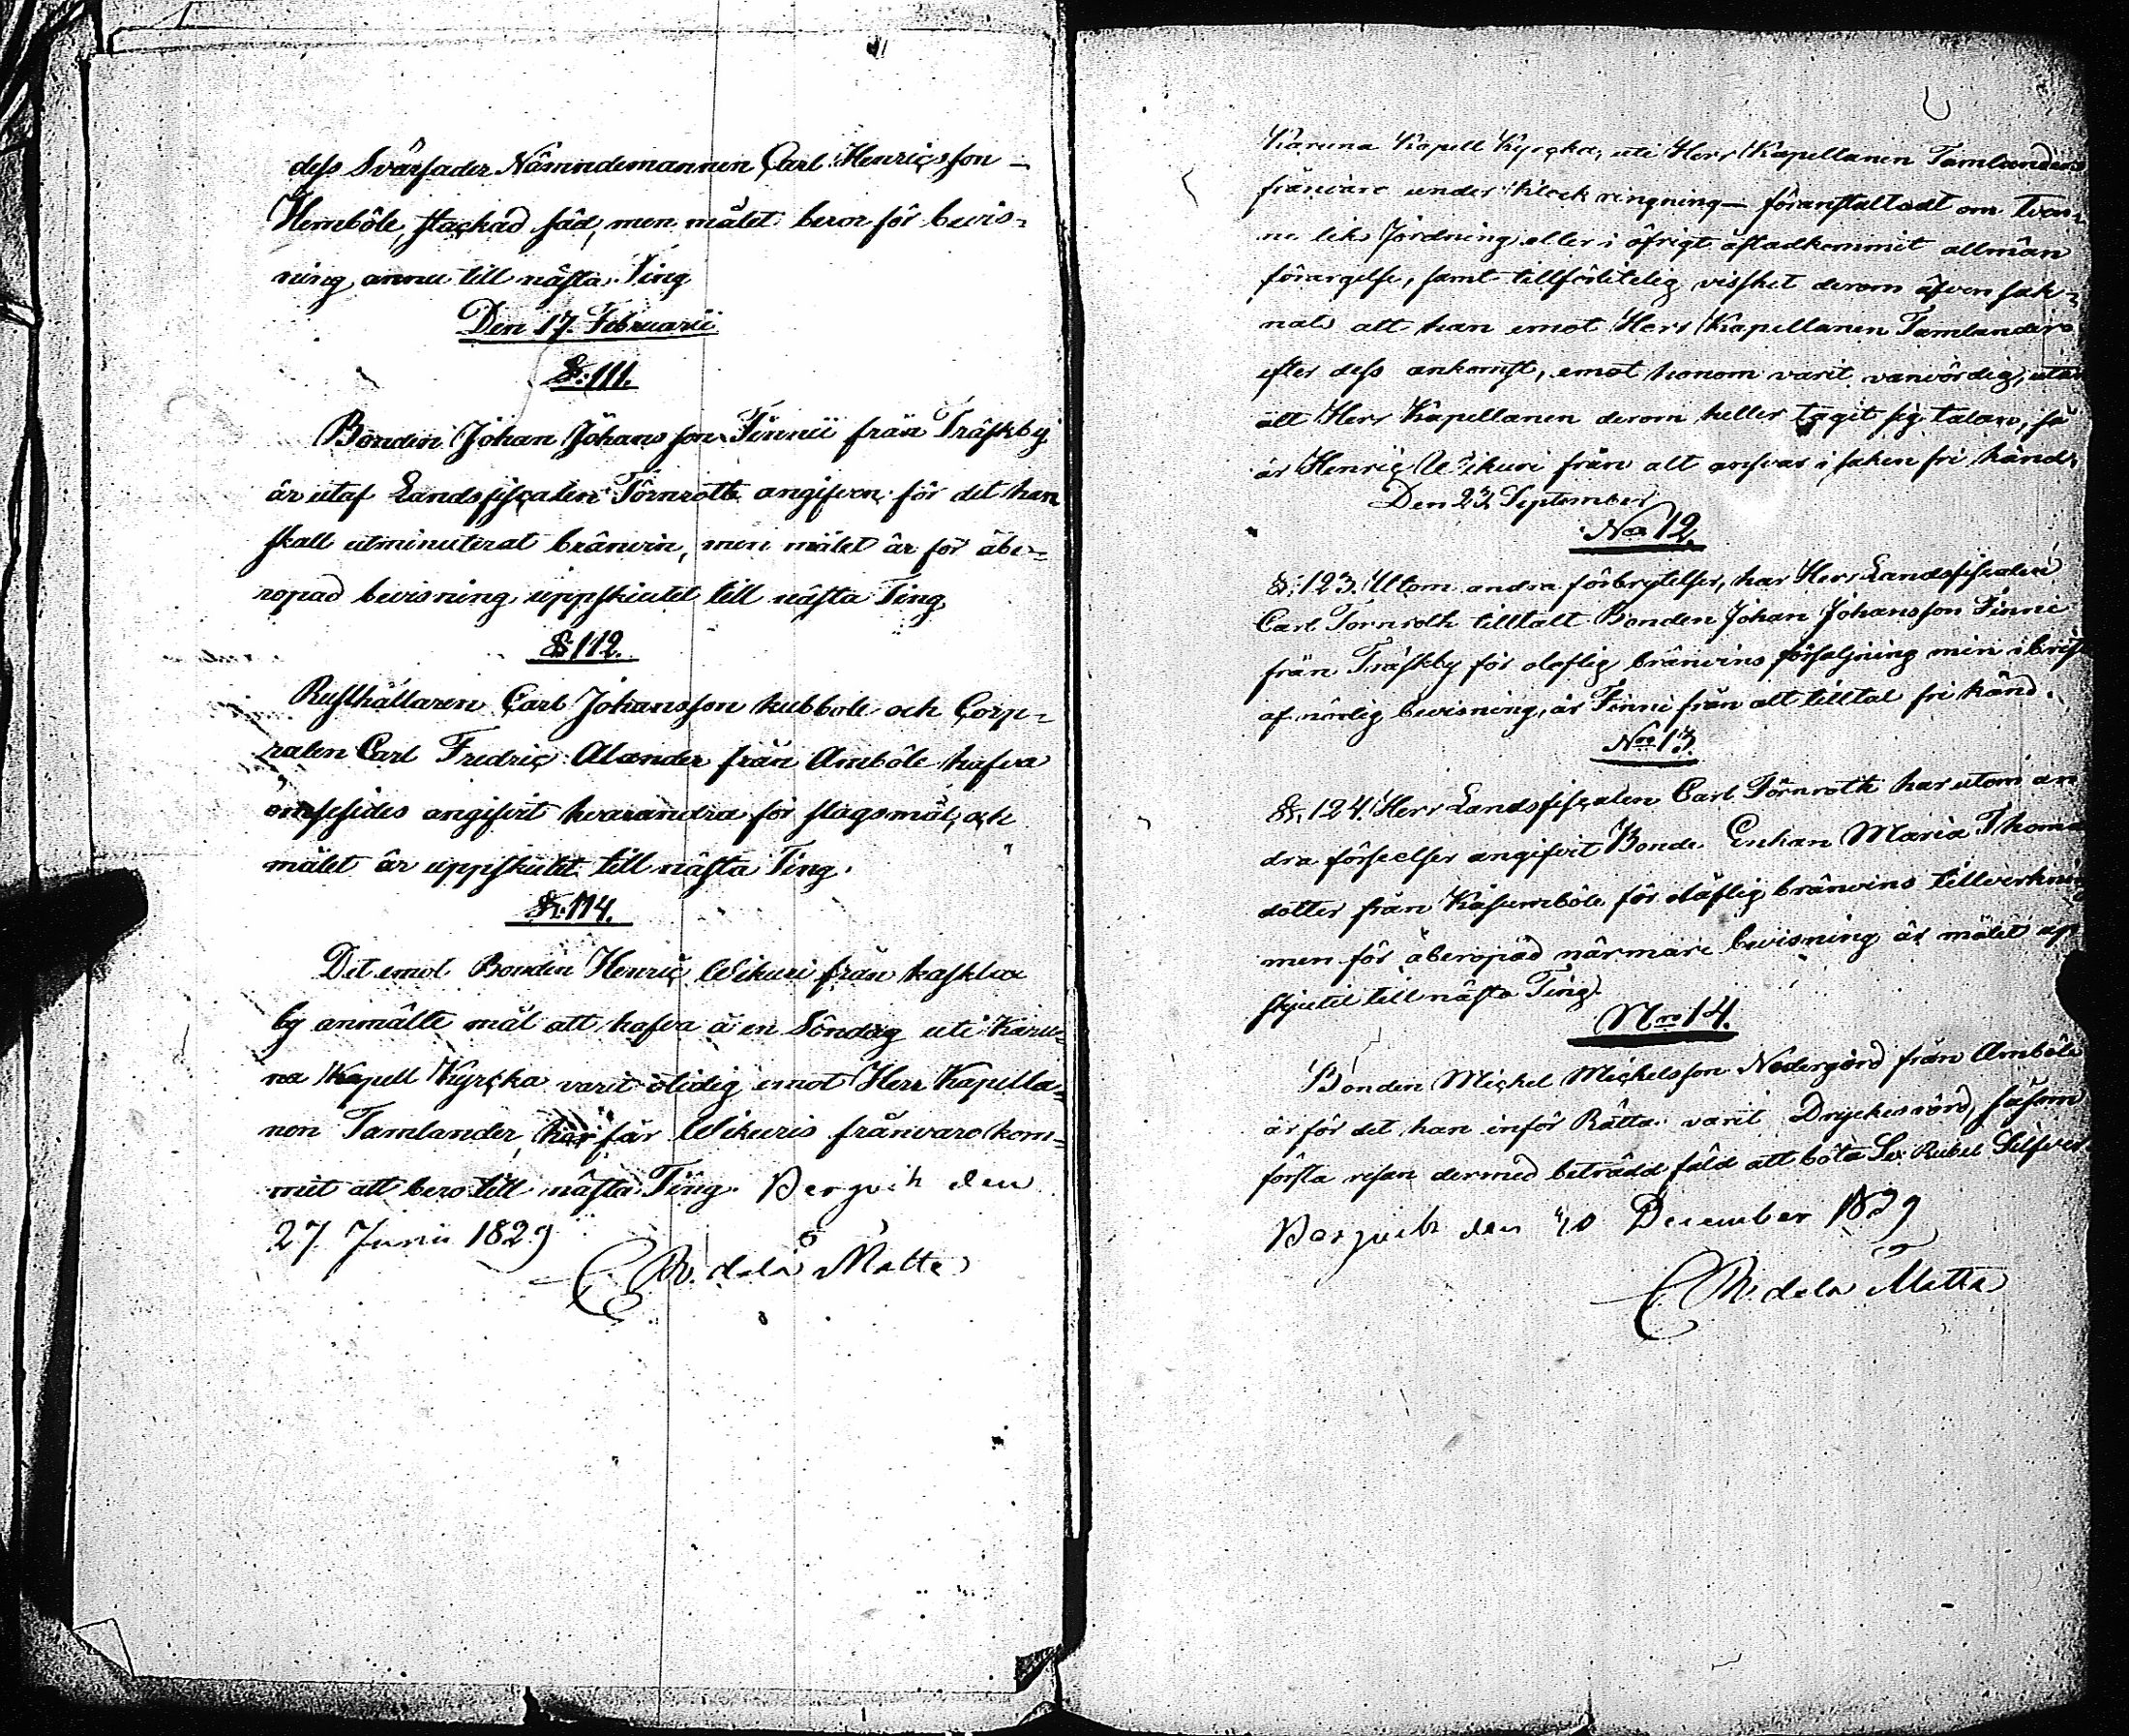 dess Svärfader Nämndemannen Carl Henricsson –
Hemböle, stackad säd, men målet beror för bevis-
ning annu till nästa Ting
Den 17. Februarii
§: 111.
Bonden Johan Johansson Finnii från Träskby
är utaf Landsfiscalen Törnroth angifven för det han
skall utminuterat bränvin, men målet är för åbe-
ropad bevisning uppskiutet till nästa Ting
§ 112.
Rusthållaren Carl Johansson kubbole och Corp-
ralen Carl Fredric Alander från Amböle hafva
ömsesides angifvit hvarandra för slagsmål, och
målet är uppskutit till nästa Ting.
§: 114.
Det emot Bonden Henric Wikuri från kasklax
by anmälte mål att hafva å en Söndag uti Karu-
na Kapell Kyrcka varit olidig emot Herr Kapella-
non Tamlander, har för Wikuris frånvaro kom-
mit att bero till nästa Ting. Bergvik den
27 Junii 1829
C R. de la Motte
Karuna Kapell Kyrcka, uti Herr Kapellanen Tamlanders
frånvaro under klockringning – föranstaltadt om tven-
ne liks Jordning eller i öfrigt åstadkommit allmän
förargelse, samt tillförlitelig visshet derom äfven sak-
nats att han emot Herr Kapellanen Tamlanders
efter dess ankomst, emot honom varit vanvördig, utan
att Herr Kapellanen derom heller tagit sig talan, så
är Henric Wikuri från alt ansvar i saken fri känd.
Den 23 September
No 12.
§: 123. Utom andra förbrytelser, har Herr Landsfiscalen
Carl Tornroth tilltalt Bonden Johan Johansson Finni
från Träskby för olaflig bränvins försaljning men i brist
af nödig bevisning, är Finni från alt tilltal fri känd.
No 13.
§. 124. Herr Landsfiscalen Carl Törnroth har utom an
dra förseelser angifvit Bonde Enkan Maria Thoma
dotter från Käsumböle för olaflig bränvins tillverkning
men för åberopad närmare bevisning är målet up
skjutit till nästa Ting.
Nro 14.
Bonden Michel Michelsson Nedergård från Amböle
är för det han inför Rätta varit Dryckesrörd, såsom
första resan dermed beträdd fäld att böta Sex Rubel Silfver.
Bergvik den 10 December 1829
C R. de la Motte